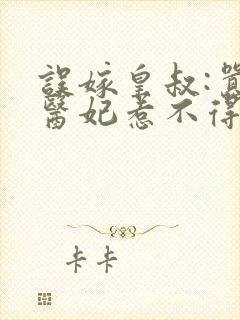 誤嫁皇叔:
醫妃惹不得
卡卡